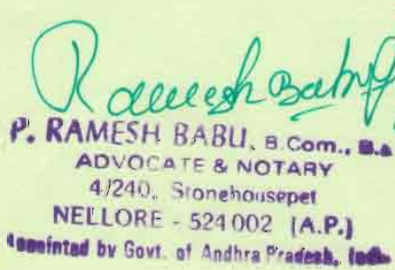 Ramesh Babu
P. RAMESH BABU, B.Com.,
ADVOCATE & NOTARY
4/240, Stonehousepet
NELLORE - 524 002 (A.P.)
Appointed by Govt. of Andhra Pradesh,